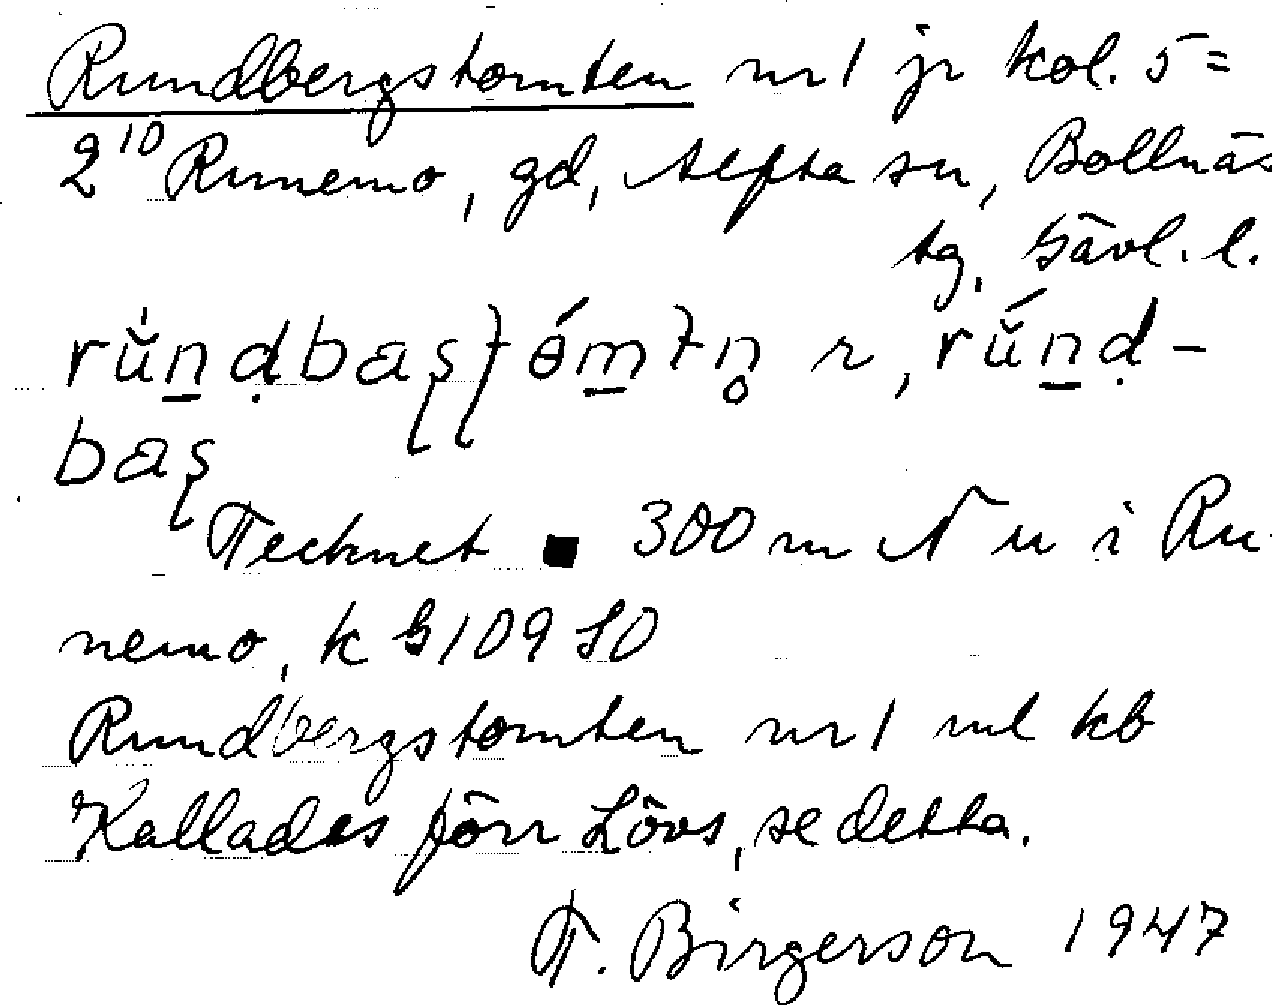 Rundbergstomten nr 1 jr kol. 5 =
2¹⁰ Runemo, gd, Alfta sn, Bollnäs
tg, Gävl. l.
bas
Tecknet ■ 300 m N u i Ru-
nemo, k G 109 SO
Rundbergstomten nr 1 ml kb
Kallades förr Lövs, se detta.
T. Birgerson 1947